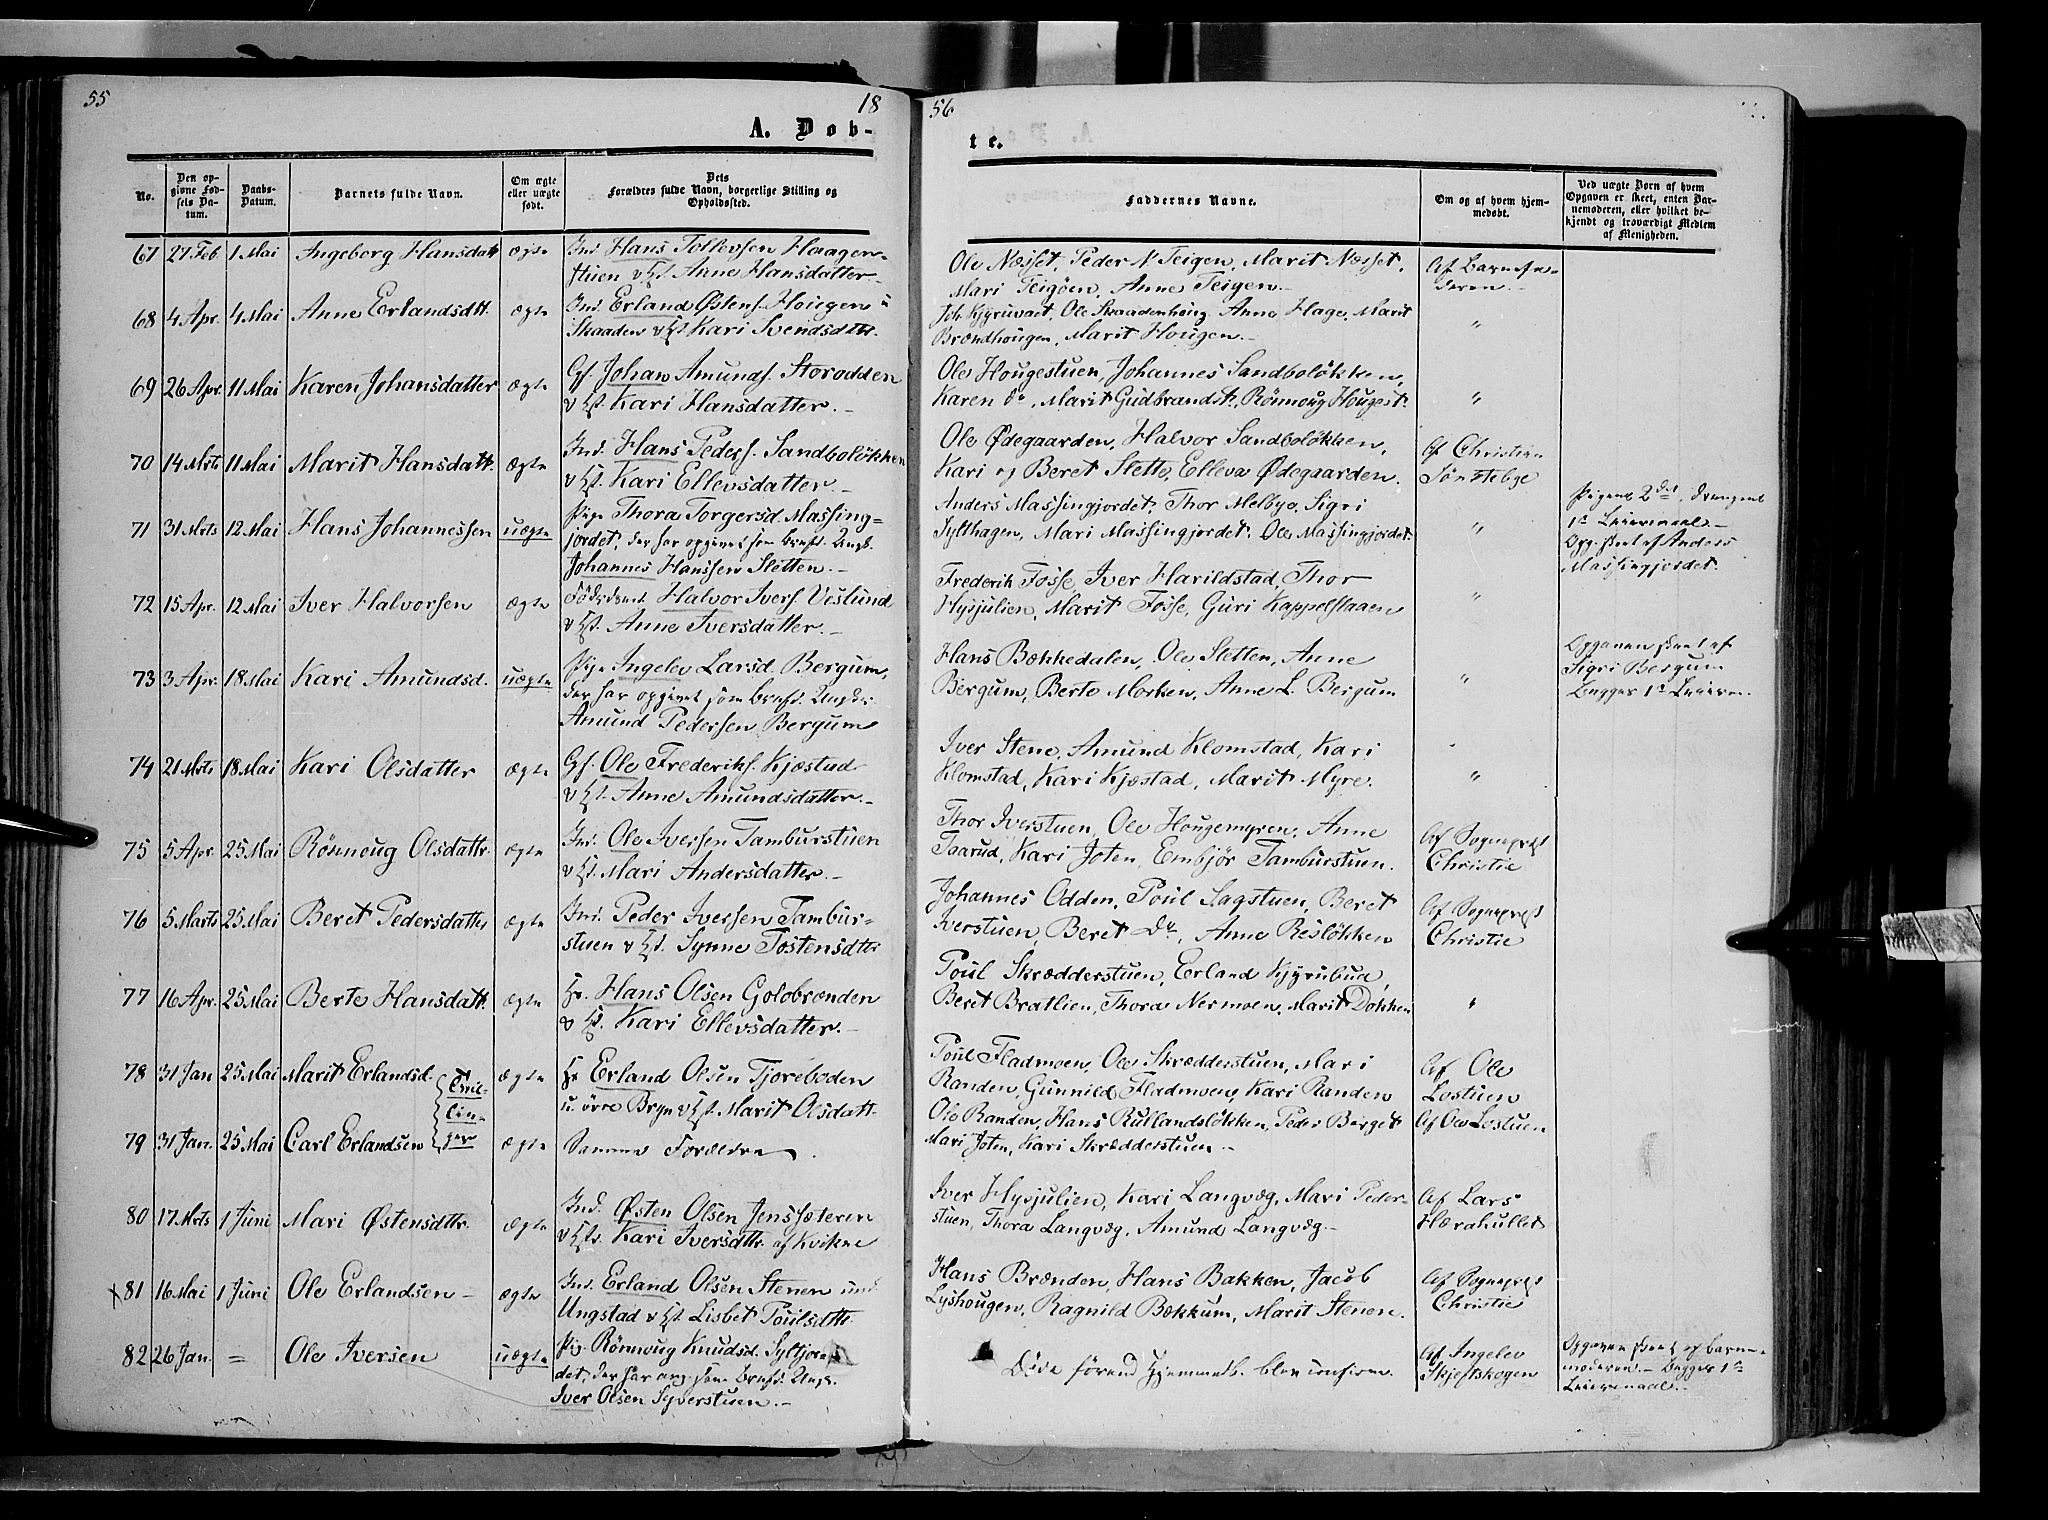 55
18
A. Døb-
No.
Den op-
givne Fød-
sels Da-
tum.
Daabs-
Datum.
Barnets fulde Navn.
Om ægte
eller uægte
født.
Dets
Forældres fulde Navn, borgerlige Stilling og
Opholdssted.
67 27 Feb 1 Mai Ingeborg Hansdatt ægte Ind. Hans Tollevsen Haagen-
stuen v Hst. Anne Hansdatter.-
68 4 Apr. 4 Mai Anne Erlandsdtt. ægte Ind. Erland Østens. Hougen u
Skaaden v Hst. Kari Svendsdttr.
69 26 Apr. 11 Mai Karen Johansdatter ægte Gf. Johan Amunds. Storodden
v Hst. Kari Hansdatter.-
70 14 Mrts 11 Mai Marit Hansdatt. ægte Ind. Hans Peders. Sandboløkken
v Hst. Kari Ellevsdatter.-
71 31 Mrts 12 Mai Hans Johannessen uægte Pige Thora Torgersd. Massing=
jordet, der har opgivet som Brnfd. Ungk.
Johannes Hanssen Sletten.-
72 15 Apr. 12 Mai Iver Halvorsen ægte Halvor Ivers. Veslund
v Hst. Anne Iversdatter.-
73 3 Apr. 18 Mai Kari Amundsd. uægte Pige Ingelev Larsd. Bergum,
der har opgivet som Brnfd. Ungkr.
Amund Pedersen Bergum
74 21 Mrts 18 Mai Kari Olsdatter ægte Gf. Ole Frederiks. Kjæstad
v Hst. Anne Amundsdatter.-
75 5 Apr. 25 Mai Rönnoug Olsdattr. ægte Ind. Ole Iversen Tamburstuen
v Hst. Mari Andersdatter.-
76 5 Marts 25 Mai Beret Pedersdatter ægte Ind. Peder Iversen Tambur-
stuen v Hst. Synne Tostensdttr
77 16 Apr. 25 Mai Berte Hansdatt. ægte Hans Olsen Golobrænden
v Hst. Kari Ellevsdatter.-
78 31 Jan 25 Mai Marit Erlandsd. Tvil-
lin-
ger ægte Erland Olsen Tjoreboden
u. övre Bryn v Hst. Marit Olsdatt.
79 31 Jan. 25 Mai Carl Erlandsen ægte Samme Forældre.
80 17 Mrts 1 Juni Mari Østensdttr. ægte Ind. Østen Olsen Jenssæteren
v Hst. Kari Iversdttr. af Kvikne
81 16 Mai 1 Juni Ole Erlandsen - ægte Ind. Erland Olsen Stenen und.
Ungstad v Hst. Lisbet Poulsdttr.
82 26 Jan. = Ole Iversen uægte Pig. Rönnoug Knudsd. Syltjor-
det, der har ang. som Brnfd. Ungk.
Iver Olsen Syverstuen.-
56
te.
Faddernes Navne.
Om og af hvem hjem-
medøbt.
Ved uægte Børn af hvem
Opgaven er skeet, enten Bar-
nemoderen, eller hvilket be-
kjendt og troværdigt Medlem
af Menigheden.
Ole Næsset, Peder N. Teigen, Marit Næsset, Af Barnefa-
Mari Teigöen, Anne Teigen.- deren.-
Joh. Ole Skaadenhöug Anne Hage, Marit
Brændhougen, Marit Hougen.- "
Ole Hougestuen, Johannes Sandboløkken,
Karen do, Marit Gudbrandst., Rönnoug Hougest. "
Ole Ødegaarden, Halvor Sandboløkken, Af Christian
Kari og Beret Slette, Ellevs Ødegaarden. Tönstebye
Anders Massingjordet, Thor Melbye, Sigri Pigens 2det, Drengens
Sylthagen, Mari Massingjordet, Ole Massingjordet. " 1ste Leiermaal.-
Opg. skeet af Anders
Massingjordet.
Frederik Fosse, Iver Harildstad, Thor
Hysjulien, Marit Fosse, Guri Kappelslaaen "
Opgaven skeet af
Hans Bækkedalen, Ole Sletten, Anne Sigri Bergum
Bergum, Berte Morken, Anne L. Bergum " Begges 1ste Leierm.
Iver Stene, Amund Klomstad, Kari
Klomstad, Kari Kjæstad, Marit Myre. "
Thor Iverstuen, Ole Hougemyren, Anne Af Sognepræst
Taarud, Kari Joten, Embjör Tamburstuen. Christie
Johannes Odden, Poul Sagstuen, Beret Af Sognepræst
Iverstuen, Beret Do, Anne Resløkken Christie
Poul Skrædderstuen, Erland Kjyrubud,
Beret Bratlien, Thora Nermoen, Marit Dokken "
Poul Fladmoen, Ole Skrædderstuen, Mari Af Ole
Randen, Gunnild Fladmoen, Kari Randen Lostuen
Ole Randen, Hans Rullandsløkken, Peder Berget Af Ole Lostuen
Mari Joten, Kari Skrædderstuen.-
Iver Hysjulien, Kari Langvæg, Mari Peder- Af Lars
stuen, Thora Langvæg, Amund Langvæg.- Hærakullet
Hans Brænden, Hans Bakken, Jacob Af Sognepræst
Lyshougen, Ragnild Bækkum, Marit Stenen. Christie
Döde förend Hjemmedb. blev confirm. Af Ingelev Opgaven skeet af Barne-
Skjeftskogen moderen.- Begges 1ste
Leiermaal.-